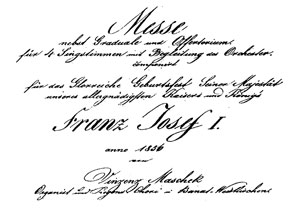 Messe
nebst Graduale und Offertorium
für 4 Singstimmen mit Begleitung des Orchester
componirt
für das Glorreiche Geburtsfest Seiner Majestät
unseres allergnädigsten Kaisers und Königs
Franz Josef I.
anno 1856
von
Vinzenz Maschek
Organist und Regens Chori in Banat.